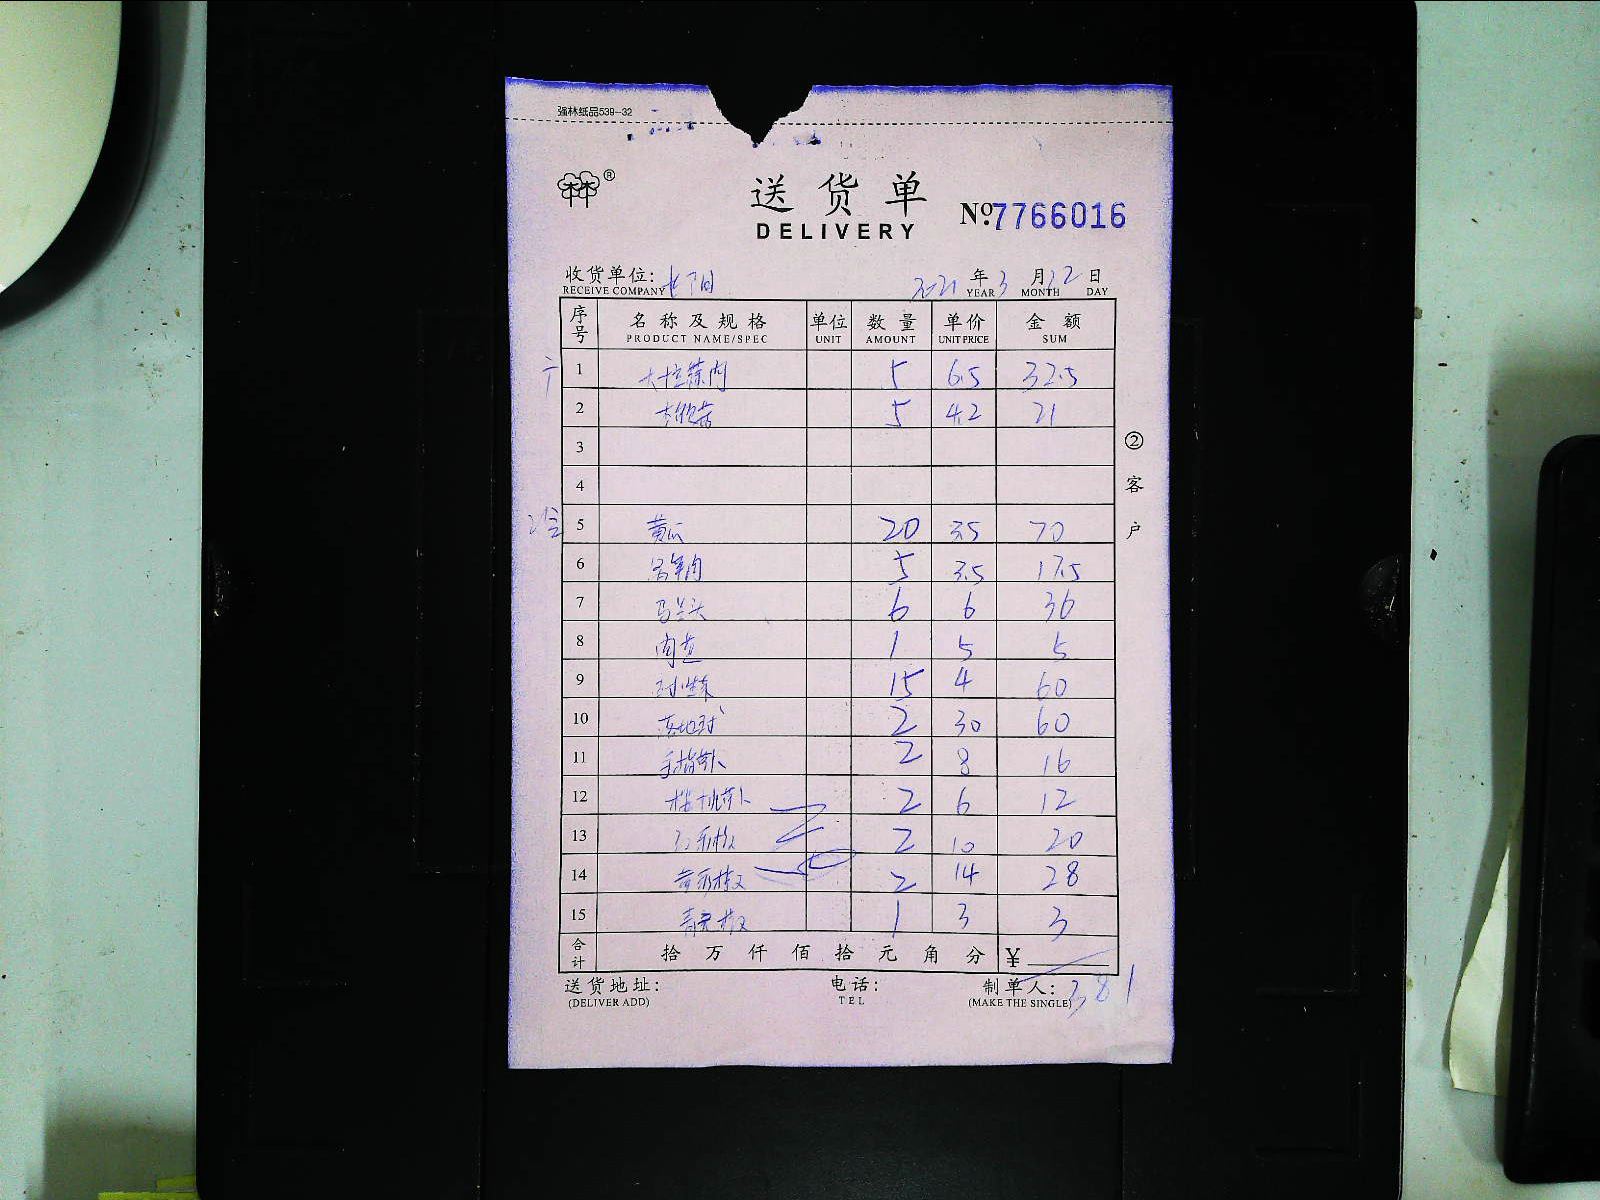 强林纸品539-32
®
送货单
DELIVERY
No.7766016
收货单位: 长阳 2021年3月12日
RECEIVE COMPANY YEAR MONTH DAY
序号 名称及规格 单位 数量 单价 金额
PRODUCT NAME/SPEC UNIT AMOUNT UNIT PRICE SUM
1 5 6.5 32.5
2 5 4.2 21
3
4
冷 5 黄瓜 20 3.5 70
6 5 3.5 17.5
7 马兰头 6 6 36
8 1 5 5
9 15 4 60
10 2 30 60
11 手指萝卜 2 8 16
12 樱桃萝卜 2 6 12
13 红彩椒 2 10 20
14 黄彩椒 2 14 28
15 青尖椒 1 3 3
合计 拾万仟佰拾元角分 ¥
381
送货地址: 电话: 制单人:
(DELIVER ADD) TEL (MAKE THE SINGLE)
②客户